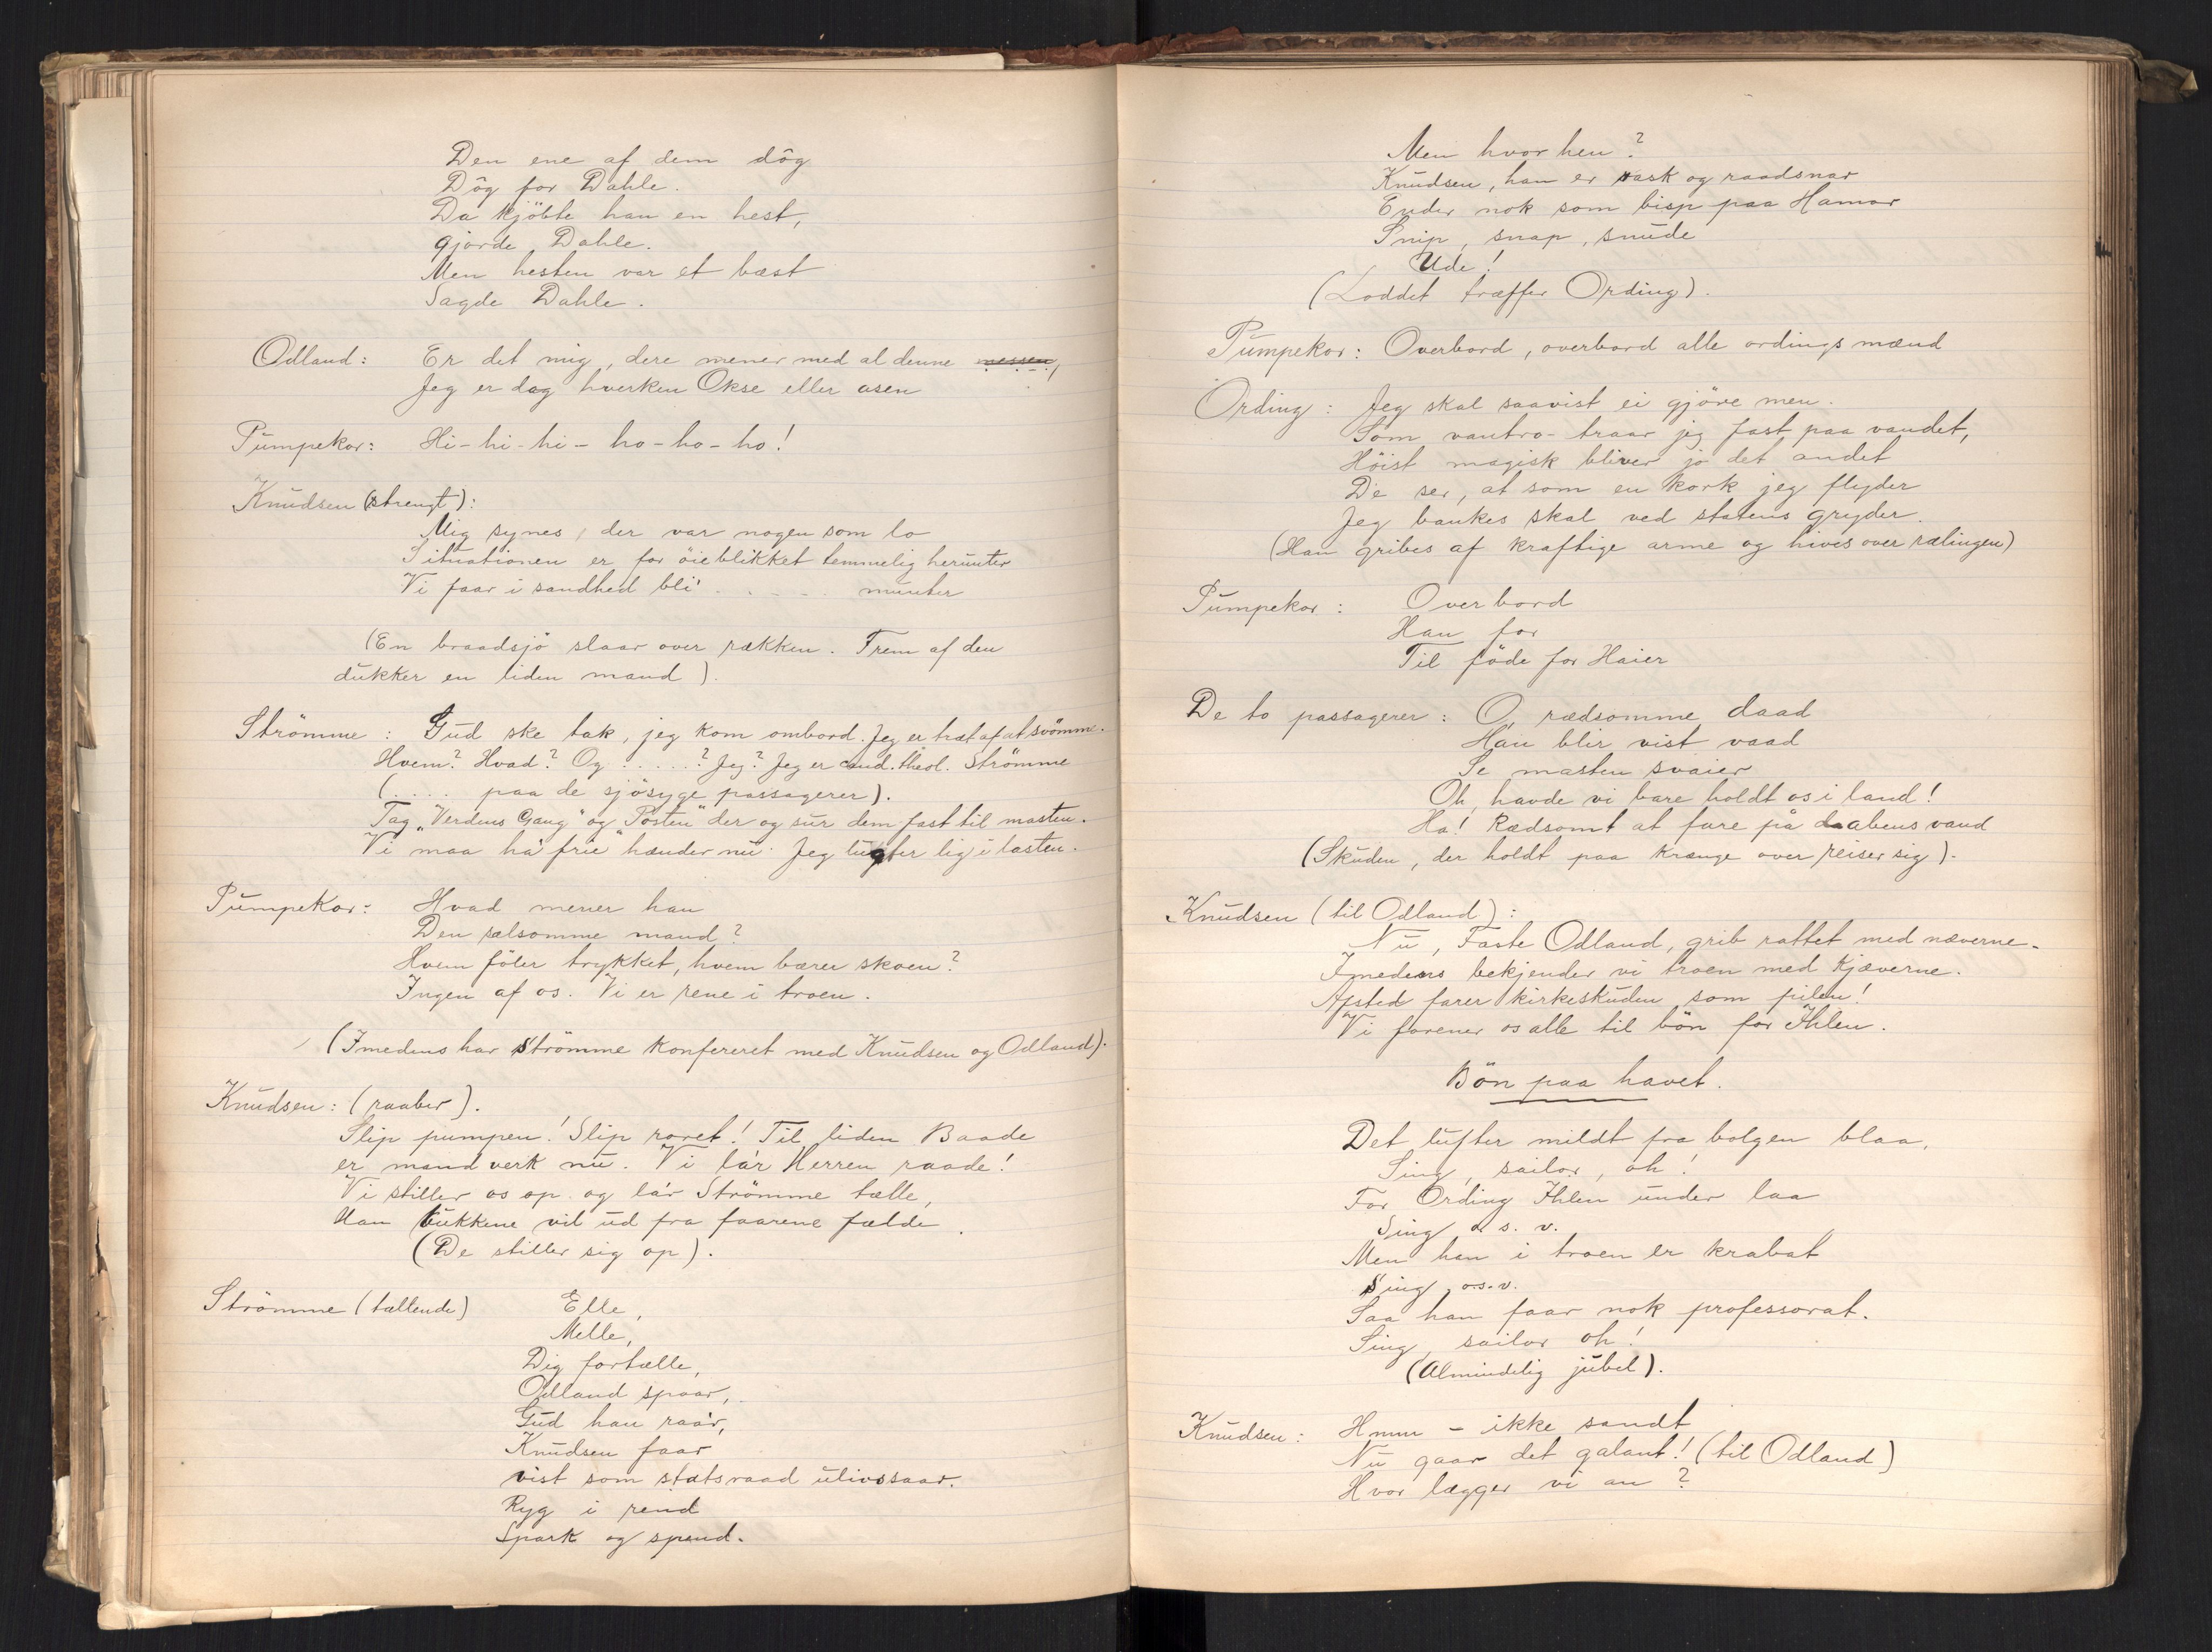 Den ene af dem dôg
Dôg for Dahle.
Da kjöbte han en hest,
gjorde Dahle.
Men hesten var et bæst
Sagde Dahle.
Odland: Er det mig, dere mener med al denne messen,
Jeg er dog hverken Okse eller asen
Pumpekor: Hi-hi-hi-ho-ho-ho!
Knudsen (strengt):
Mig synes, der var nogen som lo
Situationen er for öieblikket temmelig herunter
Vi faar i sandhed bli' . . . . munter
(En braadsjö slaar over rækken. Frem af den
dukker en liden mand).
Strömme: Gud ske tak, jeg kom ombord. Jeg er træt af at svömme.
Hvem? Hvad? Og . . . . .? Jeg? Jeg er cand. theol. Strömme
(. . . . paa de sjösyge passagerer).
Tag "Verdens Gang" og "Posten" der og sur dem fast til masten.
Vi maa ha' frie hænder nu. Jeg lugter lig i lasten.
Pumpekor: Hvad mener han
Den sælsomme mand?
Hvem föler trykket, hvem bærer skoen?
Ingen af os. Vi er rene i troen.
(Imedens har Strömme konfereret med Knudsen og Odland).
Knudsen: (raaber).
Slip pumpen! Slip roret! Til liden Baade
er mandverk nu. Vi la'r Herren raade!
Vi stiller os op og la'r Strömme tælle,
Han bukkene vil ud fra faarene fælde.
(De stiller sig op).
Strömme (tællende) Elle,
Melle,
Dig fortælle,
Odland spaar,
Gud han raa'r,
Knudsen faar
vist som statsraad ulivssaar.
Ryg i rend
Spark og spend.
Men hvor hen?
Knudsen, han er rask og raadsnar
Ender nok som bisp paa Hamar
Snip, snap, snude
Ude!
(Loddet træffer Ording).
Pumpekor: Overbord, overbord alle ordings mænd
Ording: Jeg skal saavist ei gjöre men.
Som vantro-traar jeg fast paa vandet,
Höist magisk bliver jo det andet
De ser, at som en kork jeg flyder
Jeg bankes skal ved statens gryder.
(Han gribes af kraftige arme og hives over rælingen)
Pumpekor: Overbord
Han for
Til föde for Haier
De to passagerer: O, rædsomme daad
Han blir vist vaad
Se masten svaier
Oh, havde vi bare holdt os i land!
Ha! Rædsomt at fare på daabens vand
(Skuden, der holdt paa krænge over reiser sig).
Knudsen (til Odland):
Nu, Faste Odland, grib rattet med næverne.
Imedens bekjender vi troen med kjæverne.
Afsted farer kirkeskuden som pilen!
Vi forener os alle til bön for Ihlen.
Bön paa havet.
Det lufter mildt fra bolgen blaa,
Sing, sailor, oh!
For Ording Ihlen under laa
Sing o. s. v.
Men han i troen er krabat
Sing, o.s.v.
Saa han faar nok professorat.
Sing, sailor oh!
(Almindelig jubel).
Knudsen: Hmm - ikke sandt
Nu gaar det galant! (til Odland)
Hvor lægger vi an?